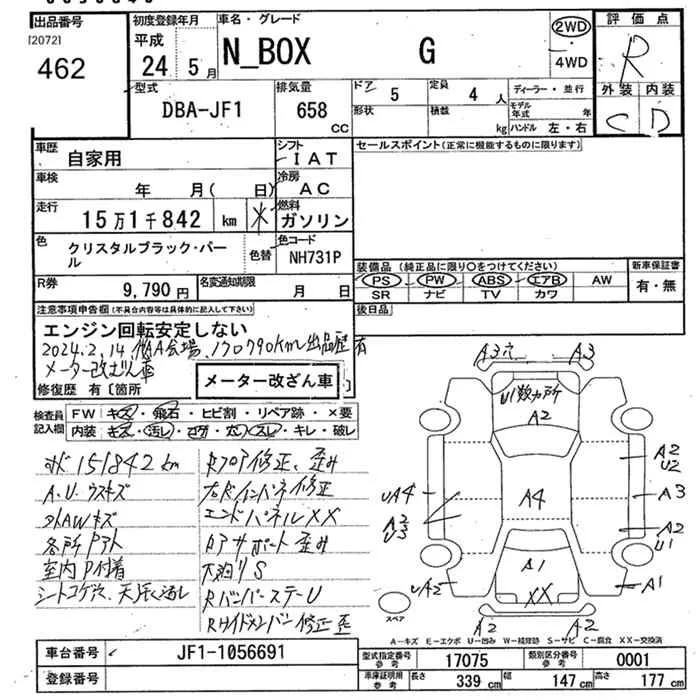 出品番号
[2072]
462
初度登録年月
平成
24 5月
車名・グレード
N_BOX G
2WD
4WD
評価点
R
外装 内装
C D
型式
DBA-JF1
排気量
658
CC
ドア 5
形状
定員 4 人
積載 kg
ディーラー・並行
モデル年式 年
ハンドル 左・右
車歴 自家用
シフト
IAT
車検 年 月( 日)
冷房
AC
走行
15万1千842 km *
燃料
ガソリン
色
クリスタルブラック・パール
色替
色コード
NH731P
R券
9,790円
名変通知期限
月 日
セールスポイント(正常に機能するものに限ります)
装備品(純正品に限り〇をつけてください)
PS PW ABS エアB AW
SR ナビ TV カワ
新車保証書
有・無
後日品
注意事項申告欄(不具合内容等は具体的に記入して下さい)
エンジン回転安定しない
2024.2.14 他AA会場、170790km出品歴有
メーター改ざん車
修復歴 有〔箇所
メーター改ざん車
〕
検査員記入欄
FW キズ・飛石・ヒビ割・リペア跡・×要
内装 キズ・汚レ・コゲ・穴・スレ・キレ・破レ
151842km
A.U.ウスキズ
外AWキズ
各所Pアト
室内P付着
シートコゲ穴、天張汚レ
Rフロア修正、歪み
右Dインパネ修正
エンドパネルXX
ロアサポート歪み
下廻りS
RバンパーステーU
Rサイドメンバー修正歪
A3穴 A3
U1数カ所
A2
A4
A1
XX
A2 U2
A3
A2
U1
A1
UA4
A3
U3
UA2
A2 A2
スペア
A-キズ E-エクボ U-凹み W-補修跡 S-サビ C-腐食 XX-交換済
車台番号
JF1-1056691
登録番号
型式指定番号
参考
17075
類別区分番号
参考
0001
車庫証明用
参考
長さ
339 cm
幅
147 cm
高さ
177 cm